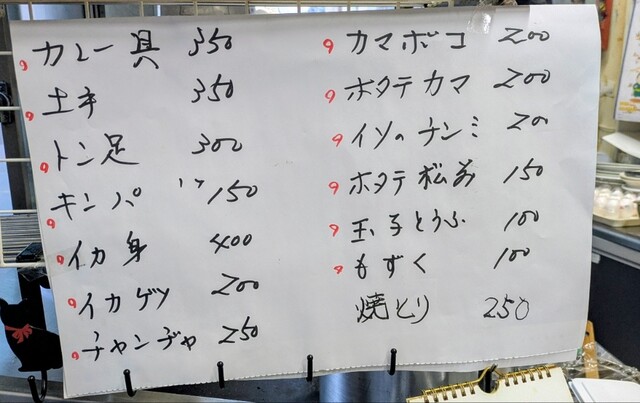 9 カレー具 350
9 土手 350
9 トン足 300
9 キンパ 150
9 イカ身 400
イカゲソ 200
9 チャンヂャ 250
9 カマボコ 200
9 ホタテカマ 200
9 イソのチンミ 200
9 ホタテ松前 150
9 玉子とうふ 100
9 もずく 100
焼とり 250